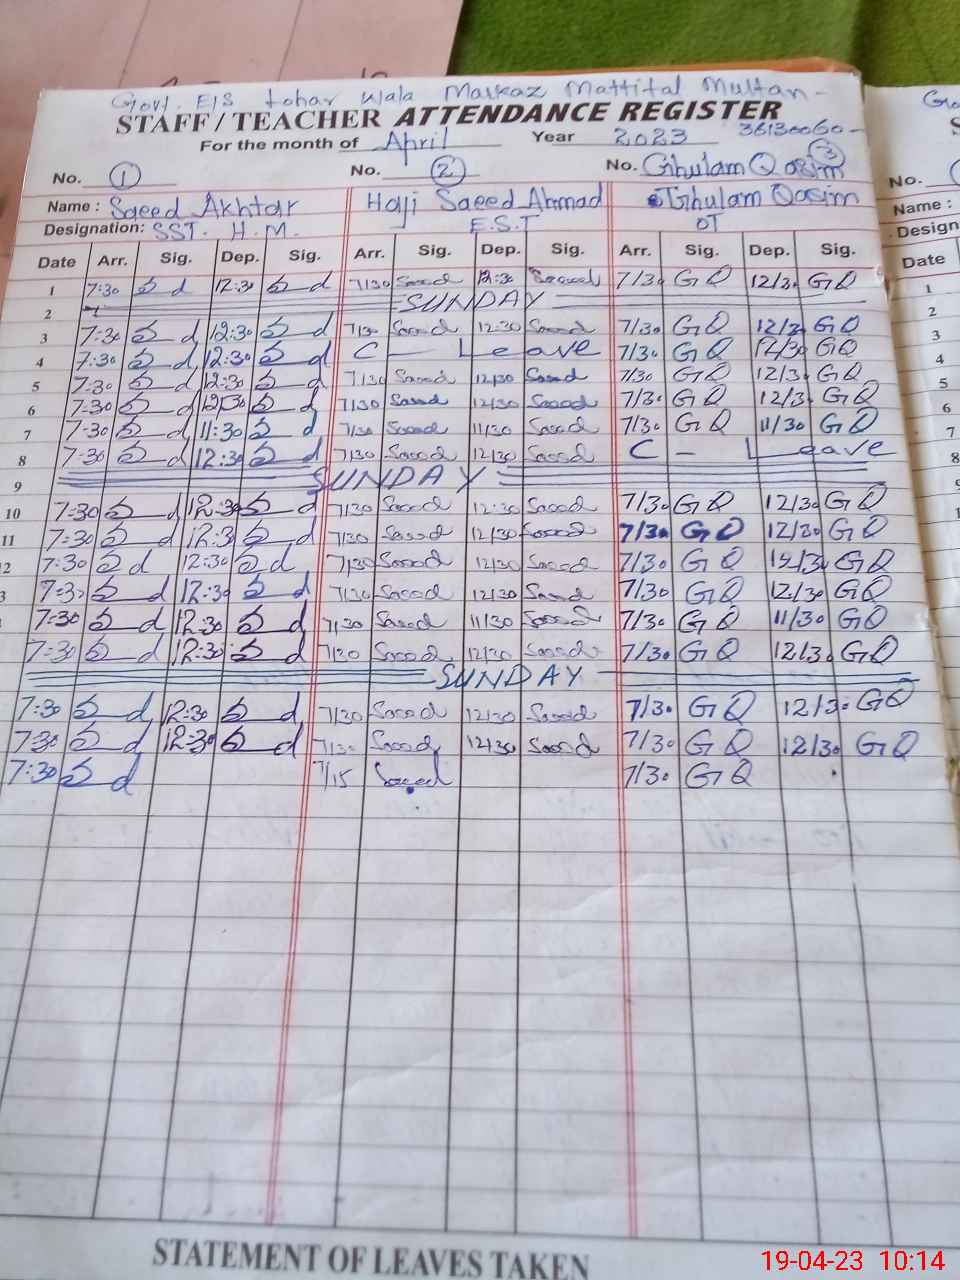 Govt. E/S Lohar Wala Markaz Mattital Multan -
STAFF / TEACHER ATTENDANCE REGISTER
For the month of April Year 2023 36130060 -
No. 1 No. 2 No. Ghulam Qasim 3
Name : Saeed Akhtar Haji Saeed Ahmad Ghulam Qasim
Designation: SST. H.M. E.S.T OT
Date Arr. Sig. Dep. Sig. Arr. Sig. Dep. Sig. Arr. Sig. Dep. Sig.
1 7:30 12:30 7/30 Saeed 12:30 Saeed 7/30 GQ 12/30 GQ
2 SUNDAY
3 7:30 12:30 7/30 Saeed 12:30 Saeed 7/30 GQ 12/30 GQ
4 7:30 12:30 C - Leave 7/30 GQ 12/30 GQ
5 7:30 12:30 7/30 Saeed 12/30 Saeed 7/30 GQ 12/30 GQ
6 7:30 12:30 7/30 Saeed 12/30 Saeed 7/30 GQ 12/30 GQ
7 7:30 11:30 7/30 Saeed 11/30 Saeed 7/30 GQ 11/30 GQ
8 7:30 12:30 7/30 Saeed 12/30 Saeed C - Leave
9 SUNDAY
10 7:30 12:30 7/30 Saeed 12:30 Saeed 7/30 GQ 12/30 GQ
11 7:30 12:30 7/30 Saeed 12/30 Saeed 7/30 GQ 12/30 GQ
2 7:30 12:30 7/30 Saeed 12/30 Saeed 7/30 GQ 12/30 GQ
3 7:30 12:30 7/30 Saeed 12/30 Saeed 7/30 GQ 12/30 GQ
7:30 12:30 7/30 Saeed 11/30 Saeed 7/30 GQ 11/30 GQ
7:30 12:30 7/30 Saeed 12/30 Saeed 7/30 GQ 12/30 GQ
SUNDAY
7:30 12:30 7/30 Saeed 12/30 Saeed 7/30 GQ 12/30 GQ
7:30 12:30 7/30 Saeed 12/30 Saeed 7/30 GQ 12/30 GQ
7:30 7/15 Saeed 7/30 GQ
STATEMENT OF LEAVES TAKEN
No.
Name :
Design
Date
1
2
3
4
5
6
7
8
19-04-23 10:14